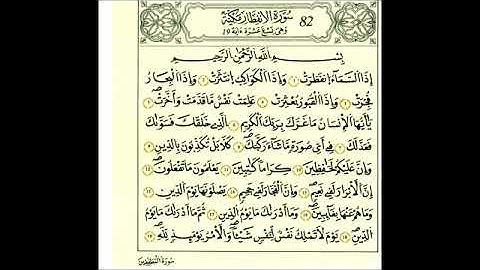 سُورَةُ الانفِطَارِ مَكِّيَّة 82
وَهِيَ تِسْعَ عَشْرَةَ ءَايَة 19
بِسْمِ اللَّهِ الرَّحْمَٰنِ الرَّحِيمِ
إِذَا السَّمَآءُ انفَطَرَتْ ١ وَإِذَا الْكَوَاكِبُ انتَثَرَتْ ٢ وَإِذَا الْبِحَارُ
فُجِّرَتْ ٣ وَإِذَا الْقُبُورُ بُعْثِرَتْ ٤ عَلِمَتْ نَفْسٌ مَّا قَدَّمَتْ وَأَخَّرَتْ ٥
يَٰٓأَيُّهَا الْإِنسَانُ مَا غَرَّكَ بِرَبِّكَ الْكَرِيمِ ٦ الَّذِي خَلَقَكَ فَسَوَّىٰكَ
فَعَدَلَكَ ٧ فِيٓ أَيِّ صُورَةٍ مَّا شَآءَ رَكَّبَكَ ٨ كَلَّا بَلْ تُكَذِّبُونَ بِالدِّينِ ٩
وَإِنَّ عَلَيْكُمْ لَحَٰفِظِينَ ١٠ كِرَامًا كَٰتِبِينَ ١١ يَعْلَمُونَ مَا تَفْعَلُونَ ١٢
إِنَّ الْأَبْرَارَ لَفِي نَعِيمٍ ١٣ وَإِنَّ الْفُجَّارَ لَفِي جَحِيمٍ ١٤ يَصْلَوْنَهَا يَوْمَ الدِّينِ ١٥
وَمَا هُمْ عَنْهَا بِغَآئِبِينَ ١٦ وَمَآ أَدْرَىٰكَ مَا يَوْمُ الدِّينِ ١٧ ثُمَّ مَآ أَدْرَىٰكَ مَا يَوْمُ
الدِّينِ ١٨ يَوْمَ لَا تَمْلِكُ نَفْسٌ لِّنَفْسٍ شَيْئًا وَالْأَمْرُ يَوْمَئِذٍ لِّلَّهِ ١٩
سُورَةُ المُطَفِّفِينَ